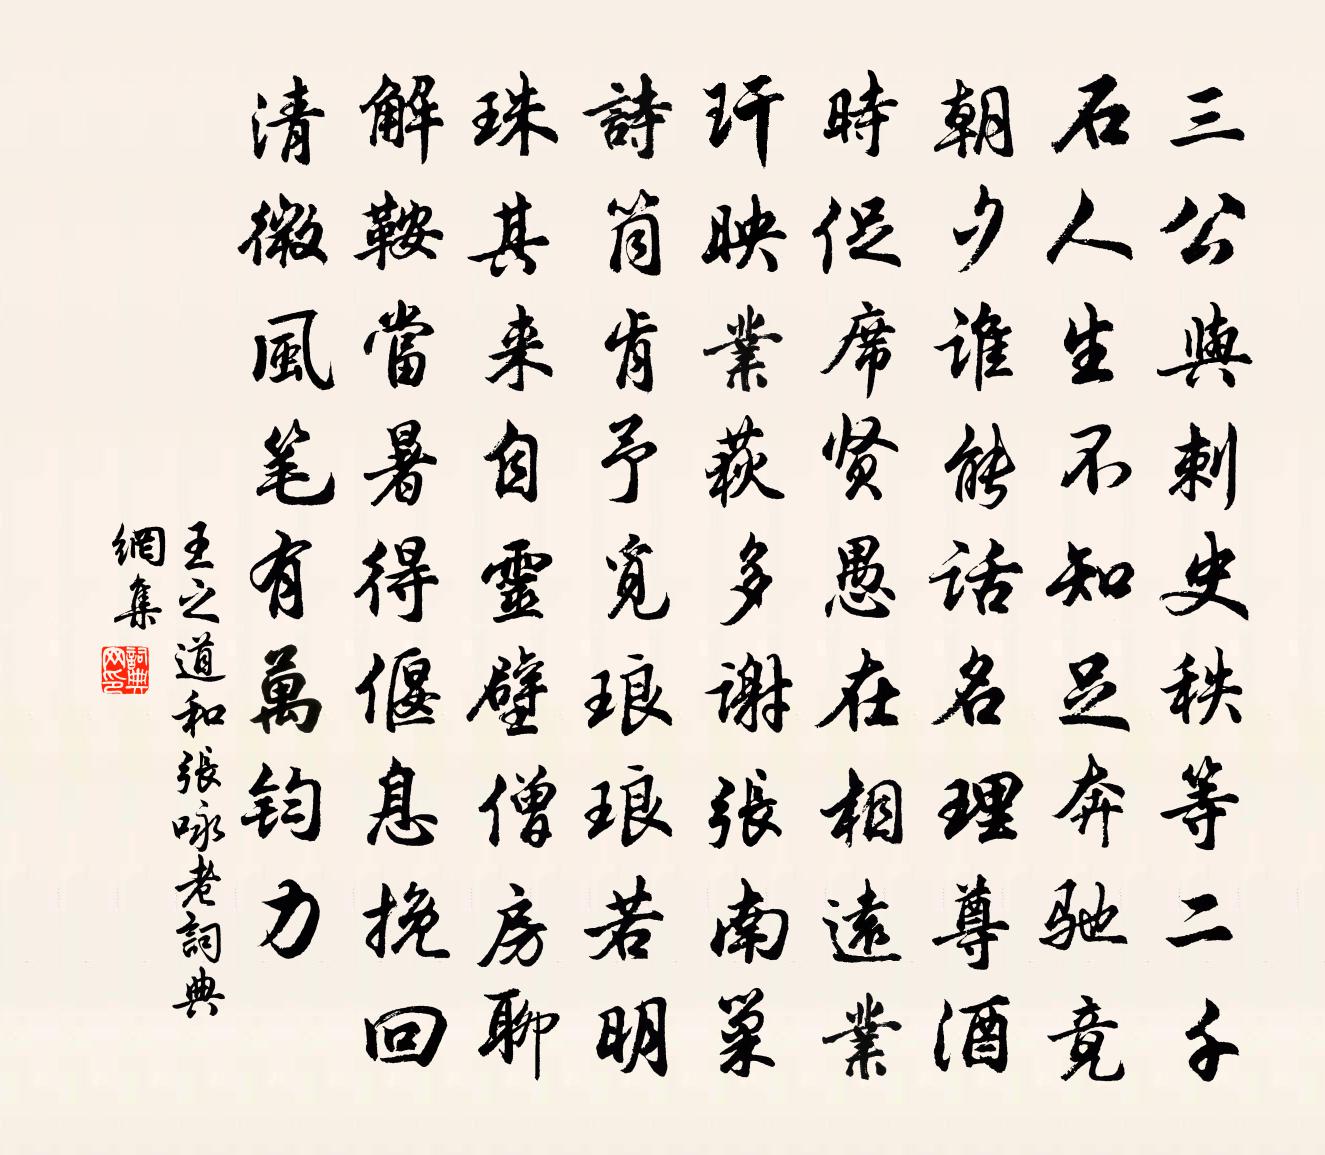 三公與刺史秩等二千
石人生不知足奔馳竟
朝夕誰能話名理尊酒
時促席贤愚在相遠業
玕映業萩多谢張南巢
詩筒肯予覓琅琅若明
珠其来自靈璧僧房聊
解鞍當暑得偃息挽回
清微風笔有萬钧力
王之道和張咏老詞典
網集
詞典网印